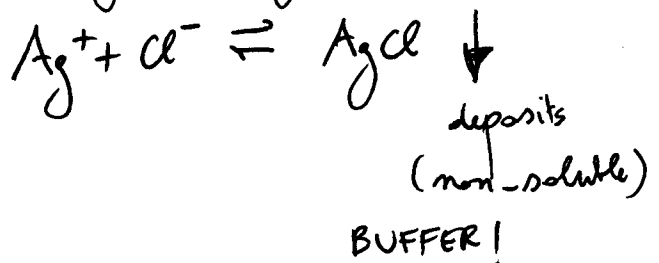 Ag⁺ + Cl⁻ ⇌ AgCl ↓
deposits
(non-soluble)
BUFFER!